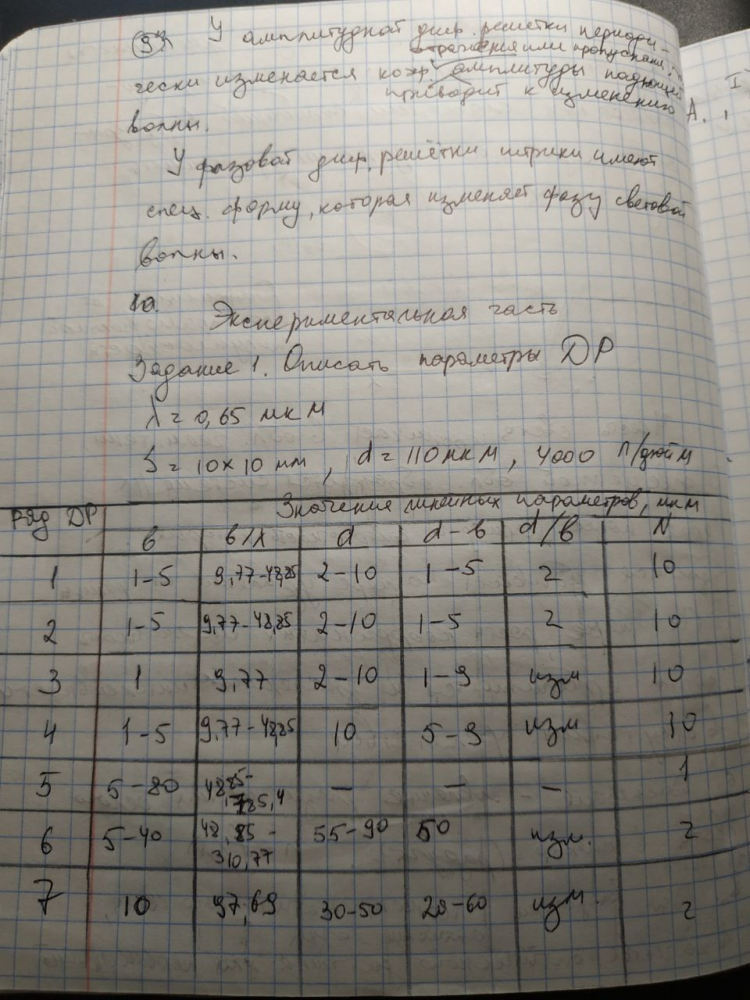 9. У амплитудной диф. решётки периоди-
отражения или пропускания
чески изменяется коэф. амплитуды падающей
приводит к изменению
волны.
У фазовой диф. решётки штрихи имеют
спец. форму, которая изменяет фазу световой
волны.
10.
Экспериментальная часть
Задание 1. Описать параметры ДР
λ = 0,65 мкм
S = 10×10 мм, d = 110 мкм, 4000 л/дюйм
Ряд ДР Значения линейных параметров, мкм
b b/λ d d-b d/b N
1 1-5 9,77-48,85 2-10 1-5 2 10
2 1-5 9,77-48,85 2-10 1-5 2 10
3 1 9,77 2-10 1-9 изм 10
4 1-5 9,77-48,85 10 5-9 изм 10
5 5-80 48,85-785,4 — — — 1
6 5-40 48,85-310,77 55-90 50 изм. 2
7 10 97,69 30-50 20-60 изм. 2
А., I